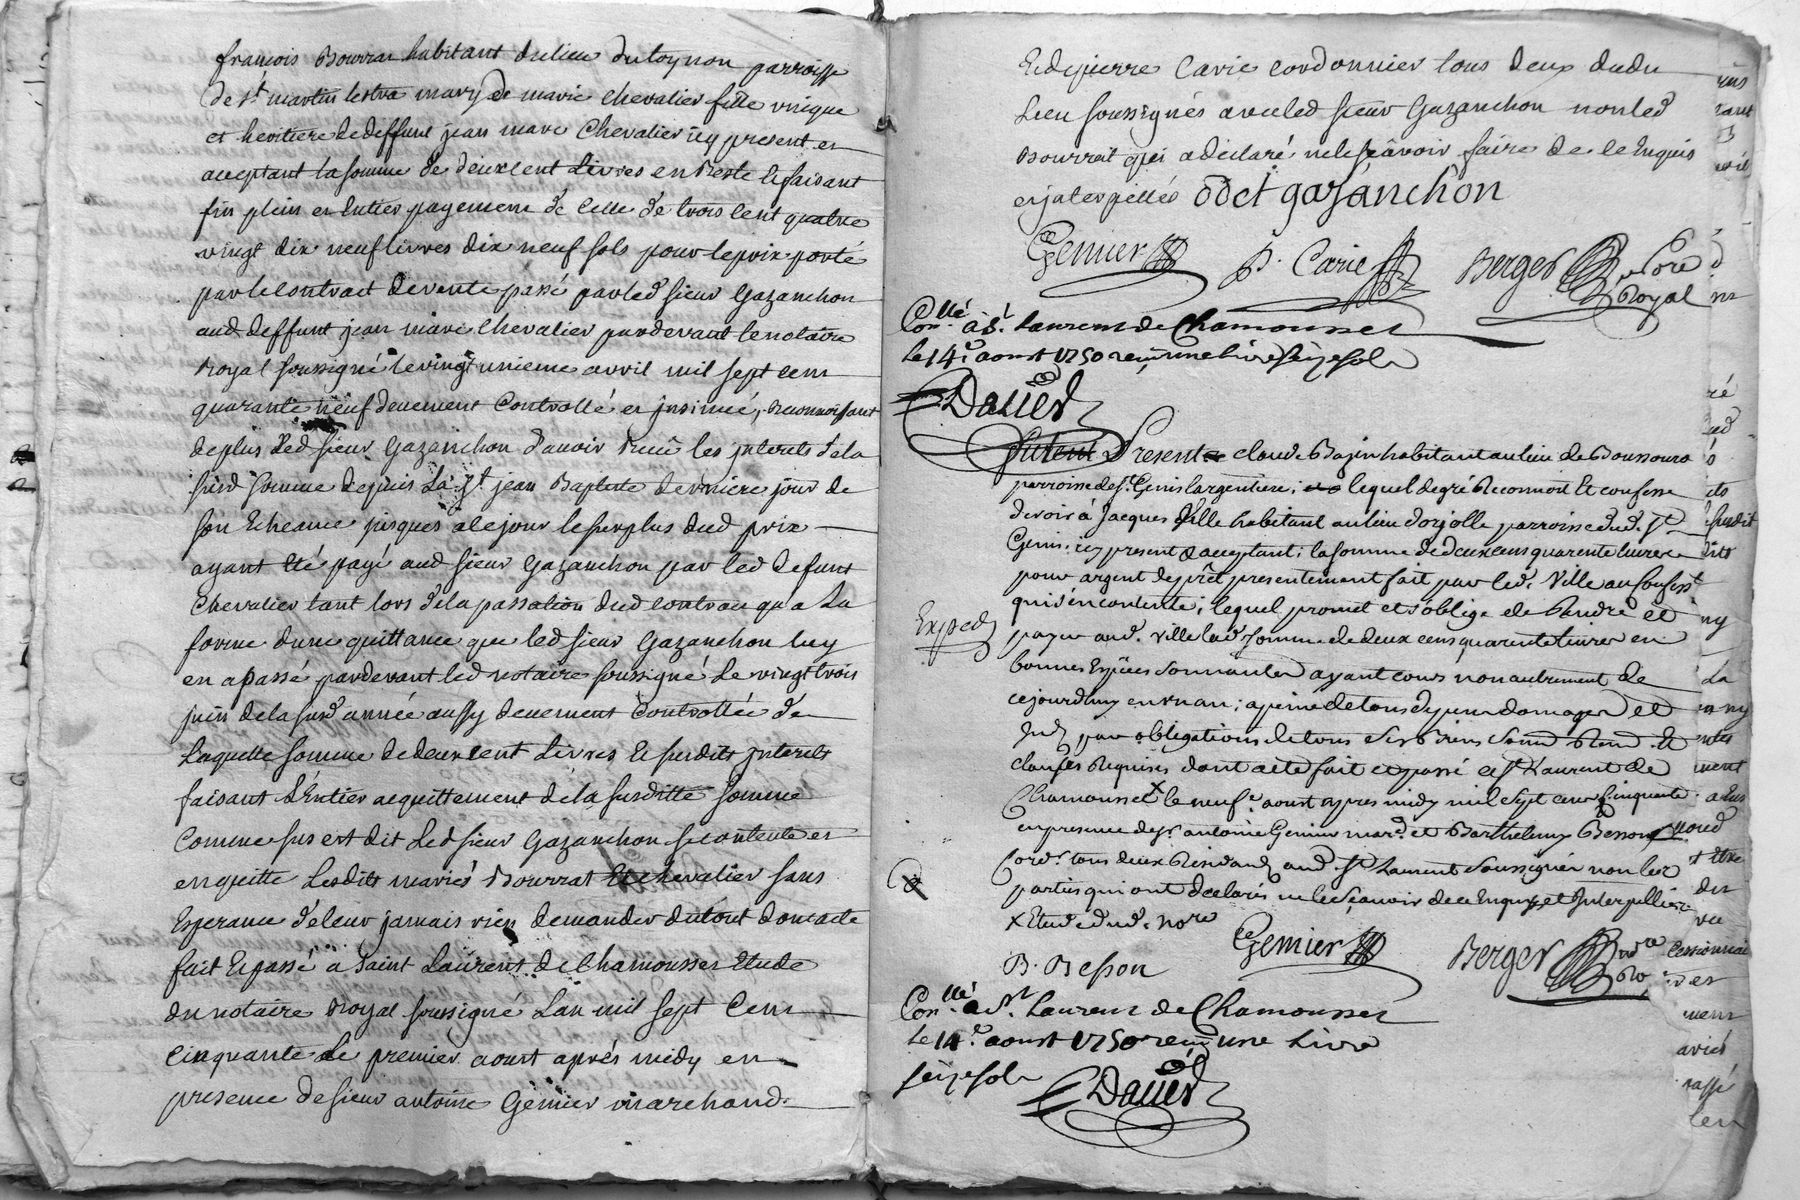 françois Bourrat habitant du lieu du toynon parroisse
de st martin lestra mary de marie chevalier fille unique
et heritiere de deffunt jean marc Chevalier icy present et
acceptant la somme de deux cent Livres en Reste le faisant
fin plein et Entier payement de Celle de trois Cent quatre
vingt dix neuf livres dix neuf sols pour le prix porté
par le Contract de vente passé par led sieur Gazanchon
aud deffunt jean marc Chevalier pardevant le notaire
Royal soussigné le vingt unieme avril mil sept cent
quarante neuf deuement Controllé et jnsinué, Reconnoissant
de plus led sieur Gazanchon d'avoir Reçu les jnterets de la
susd somme depuis La st jean Baptiste derniere jour de
son Echeance jusques a ce jour le surplus dud prix
ayant Eté payé aud sieur Gazanchon par led defunt
Chevalier tant lors de la passation dud contract qu'a La
forme d'une quittance que led sieur Gazanchon luy
en a passé pardevant led notaire soussigné Le vingt trois
juin de la susd année aussy deuement Controllée de
Laquelle somme de deux cent Livres Et susdits jnterets
faisant L'Entier acquittement de la susditte somme
Comme sus est dit Led sieur Gazanchon se contente et
en quitte Lesdits mariés Bourrat Et chevalier sans
Esperance de leur jamais rien demander du tout dont acte
fait Et passé a Saint Laurent de Chamousset Etude
du notaire Royal soussigné L'an mil sept Cent
Cinquante Le premier aoust aprés midy en
presence de sieur antoine Gemier marchand
Et de pierre Carie cordonnier tous deux dudit
Lieu soussignés avec led sieur Gazanchon non led
Bourrat qui a declaré ne le sçavoir faire de ce Enquis
et jnterpellés odet gazanchon
Gemier P. Carie Berger Nore Royal
Conllé a st. Laurent de Chamousset
Le 14e aoust 1750 reçu une livre seize sols
Dauier
Present claude Bazin habitant au lieu de Boussouro
parroisse de st. Genis largentiere; lequel de gré Reconnoit Et confesse
devoir à Jacques Ville habitant au lieu d'orjolle parroisse dud. st
Genis, icy present & acceptant; la somme de deux cens quarente livres
pour argent de prêt presentement fait par led. Ville au Confesst
qui s'en contente; lequel promet et s'oblige de Rendre et
Exped
payer aud. Ville lad. somme de deux cens quarente livres en
bonnes Espèces sonnantes ayant cours non autrement de
ce jourd'huy en un an; a peine de tous depens domages et
par obligations de tous ses Biens Et
clauses Requises dont acte fait et passé a st Laurent de
Chamousset x le neuf e. aoust apres midy mil sept cent cinquante
en presence de sr. antoine Gemier mard. et Barthelemy Besson
Cord. tous deux Residand aud. st Laurent soussignés non les
parties qui ont declarés ne le sçavoir de ce Enquis et Interpellés
x Etude dud. nore
B. Besson Gemier Berger nre Ro
Conllé a st Laurent de Chamousset
Le 14e aoust 1750 reçu une Livre
seize sols
Dauier